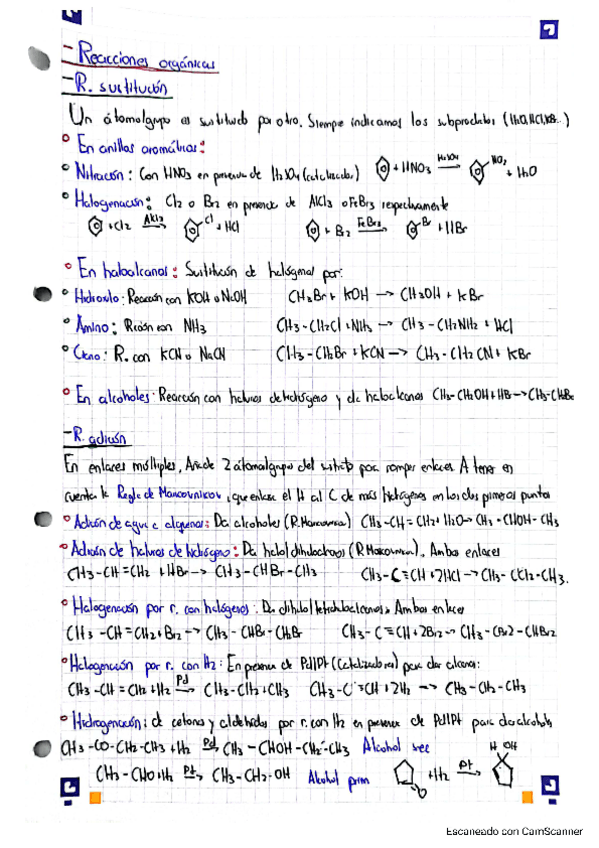 - Reacciones orgánicas
- R. sustitución
Un átomo/grupo es sustituido por otro. Siempre indicamos los subproductos (H2O, HCl, KBr...)
° En anillos aromáticos:
° Nitración: Con HNO3 en presencia de H2SO4 (catalizador) + HNO3 H2SO4 NO2 + H2O
° Halogenación: Cl2 o Br2 en presencia de AlCl3 o FeBr3 respectivamente
+ Cl2 AlCl3 Cl + HCl + Br2 FeBr3 Br + HBr
° En haloalcanos: Sustitución de halógeno por:
° Hidroxilo: Reacción con KOH o NaOH CH3Br + KOH -> CH3OH + KBr
° Amino: Reacción con NH3 CH3-CH2Cl + NH3 -> CH3-CH2NH2 + HCl
° Ciano: R. con KCN o NaCN CH3-CH2Br + KCN -> CH3-CH2CN + KBr
° En alcoholes: Reacción con haluros de hidrógeno y da haloalcanos CH3-CH2OH + HBr -> CH3-CH2Br
- R. adición
En enlaces múltiples, Añade 2 átomos/grupos del sustrato para romper enlaces. A tener en
cuenta la Regla de Marcovnicov, que enlaza el H al C de más hidrógenos en los dos primeros puntos
° Adición de agua a alquenos: Da alcoholes (R. Marcovnicov) CH3-CH=CH2 + H2O -> CH3-CHOH-CH3
° Adición de haluros de hidrógeno: Da halo/dihaloalcanos (R. Marcovnicov). Ambos enlaces
CH3-CH=CH2 + HBr -> CH3-CHBr-CH3 CH3-C≡CH + 2HCl -> CH3-CCl2-CH3.
° Halogenación por r. con halógenos: Da dihalo/tetrahaloalcanos. Ambos enlaces
CH3-CH=CH2 + Br2 -> CH3-CHBr-CH2Br CH3-C≡CH + 2Br2 -> CH3-CBr2-CHBr2
° Halogenación por r. con H2: En presencia de Pd/Pt (catalizadores) para dar alcanos:
CH3-CH=CH2 + H2 Pd -> CH3-CH2+CH3 CH3-C≡CH + 2H2 -> CH3-CH2-CH3
° Hidrogenación: de cetonas y aldehídos por r. con H2 en presencia de Pd/Pt para da alcoholes
CH3-CO-CH2-CH3 + H2 Pd -> CH3-CHOH-CH2-CH3 Alcohol sec
CH3-CHO + H2 Pt -> CH3-CH2-OH Alcohol prim O + H2 Pt -> H OH
Escaneado con CamScanner